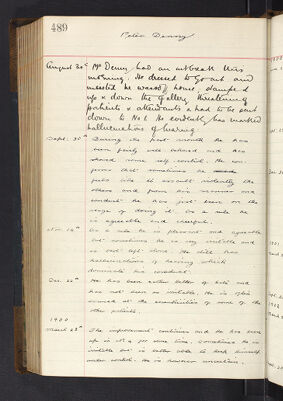 489
Peter Denny
August 30th Mr Denny had an outbreak this
morning. He dressed to go out and
insisted he was off home, stamped
up & down the gallery threatening
patients & attendants & had to be sent
down to No 6. He evidently has marked
hallucinations of hearing
Sept: 30th During the past month he has
been fairly well behaved and has
shewed some self control. He con-
fesses that sometimes he
feels like to assault violently the
others and from his manner and
conduct he has just been on the
verge of doing it. As a rule he
is agreeable and cheerful.
Nov. 14th As a rule he is pleasant and agreeable
but sometimes he is very irritable and
is best left alone. He still has
hallucinations of hearing which
dominate his conduct.
Dec. 22nd He has been rather better of late and
has not been so irritable. He is often
amused at the eccentricities of some of the
other patients.
1900
March 28th The improvement continues and he has been
up in No 2 for some time. Sometimes he is
irritable but is better able to keep himself
under control. He is however